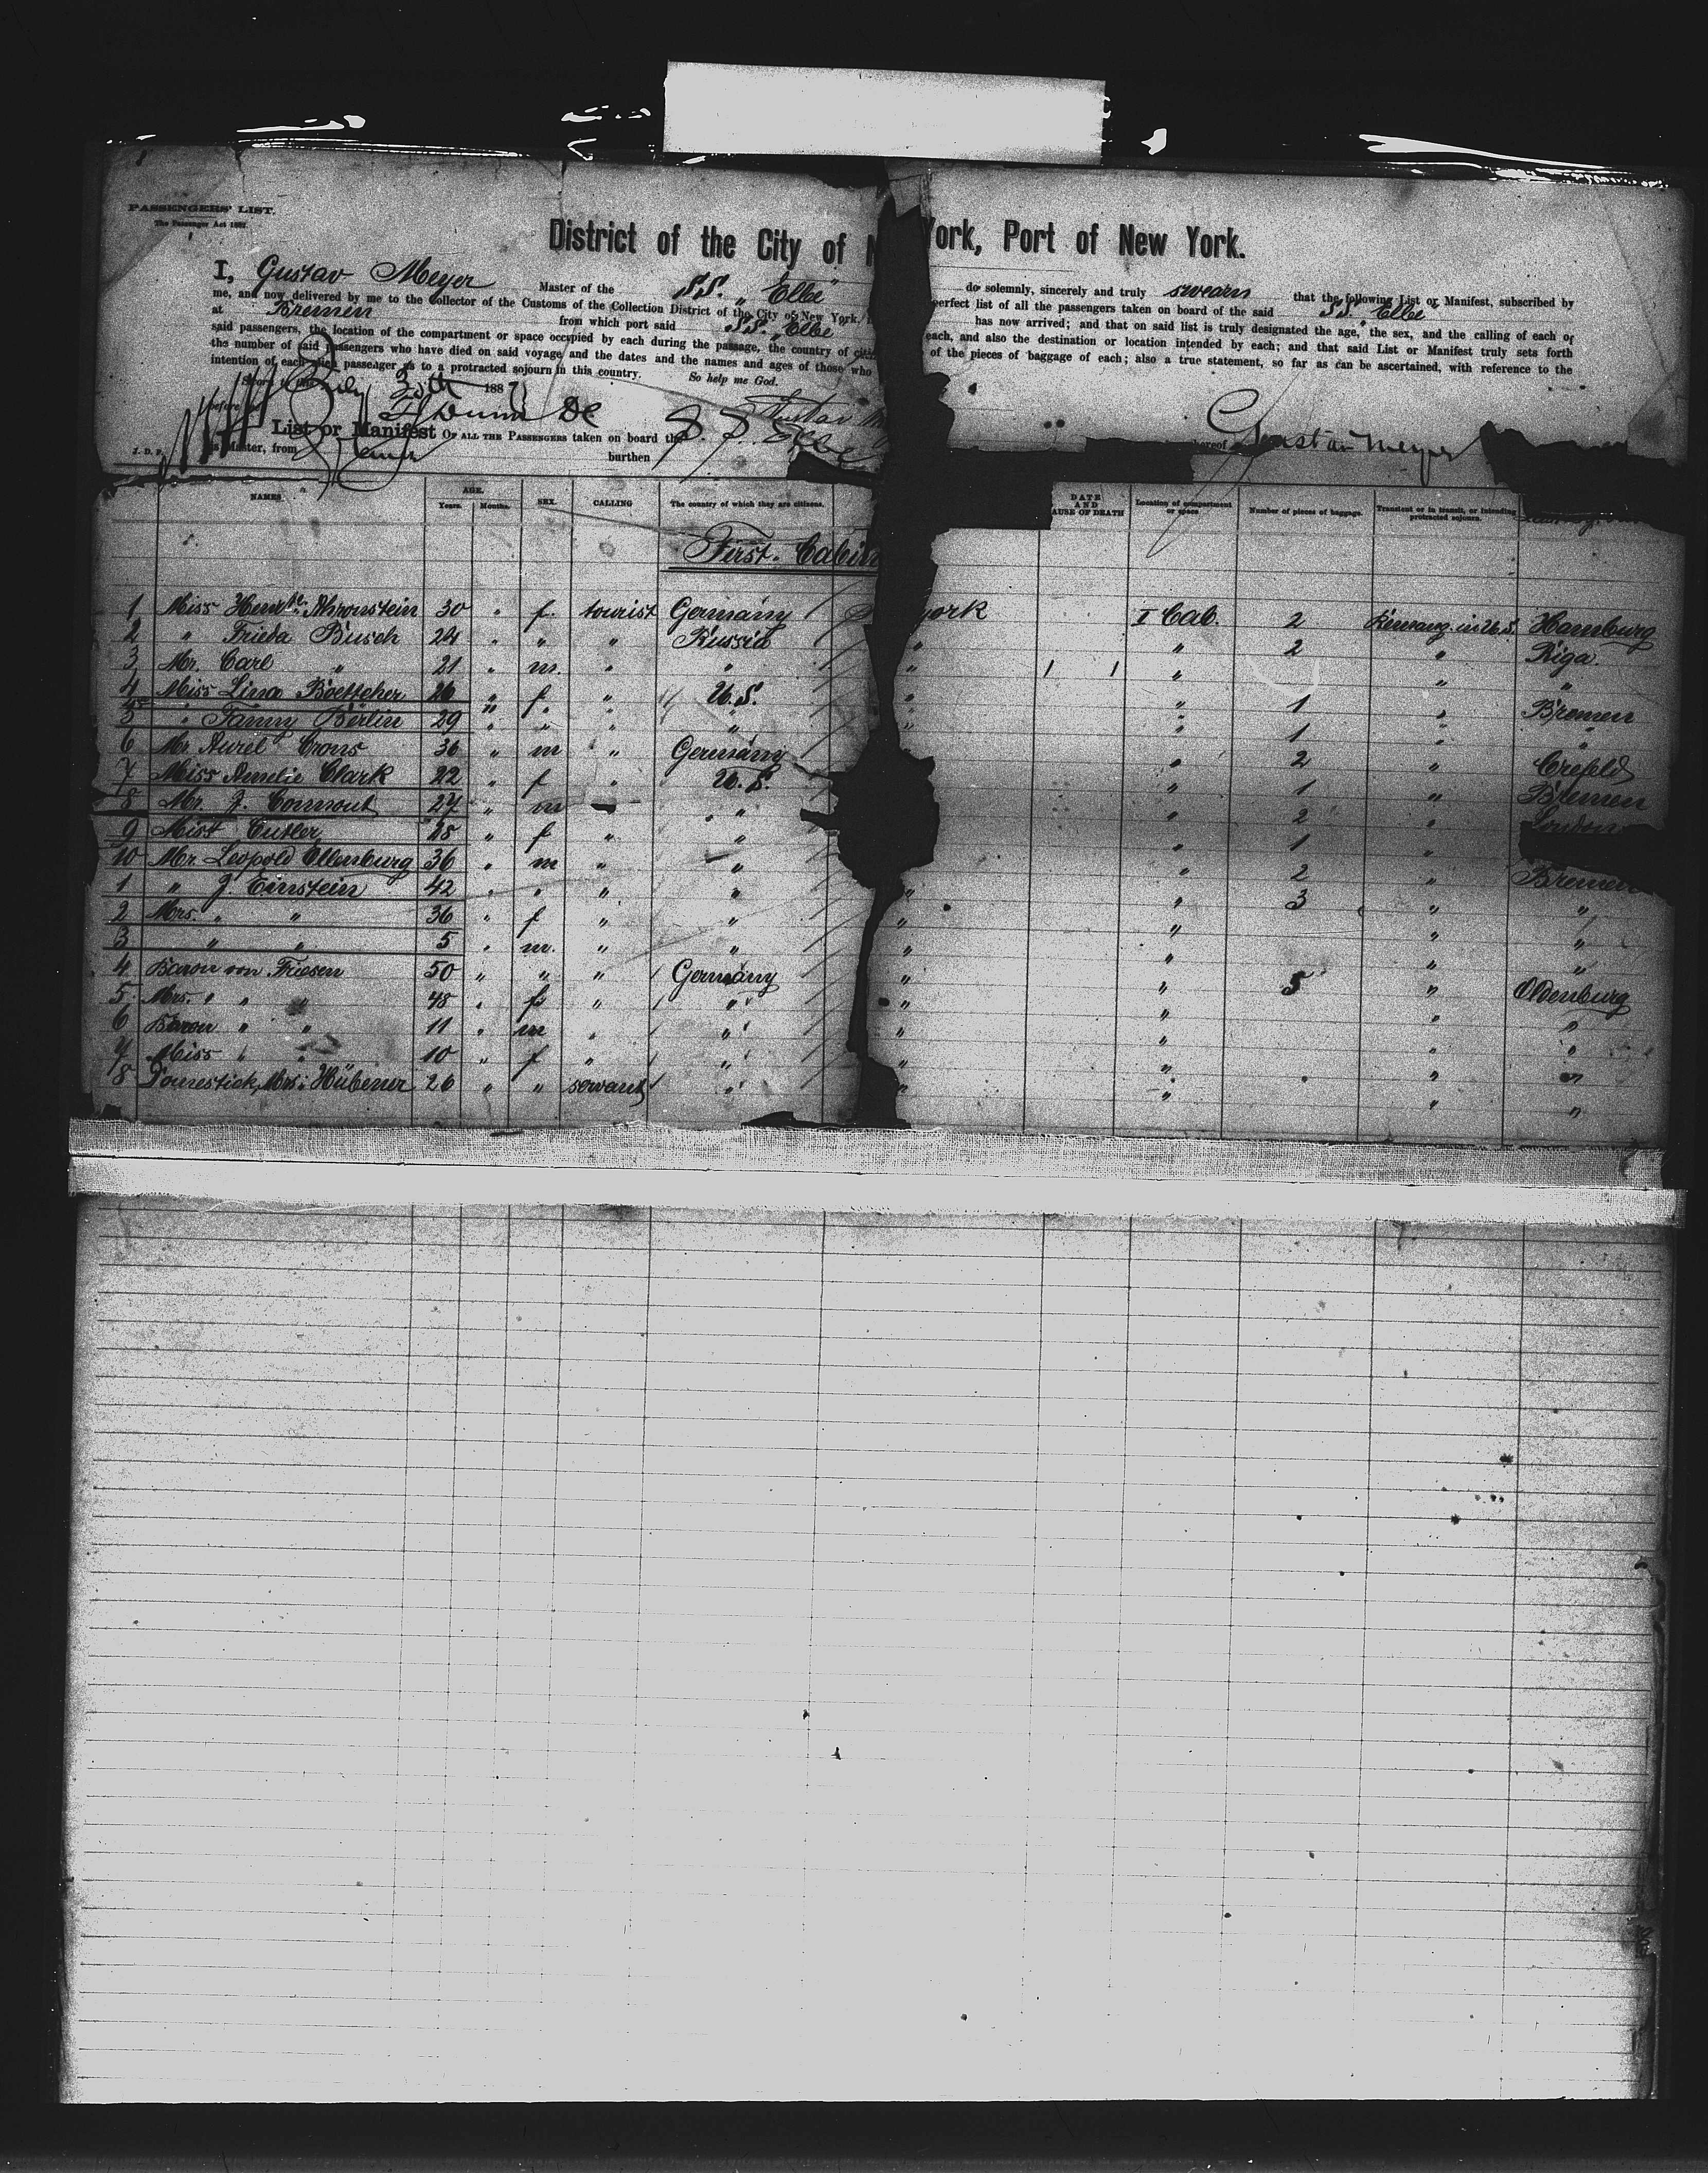 PASSENGERS' LIST.
The Passenger Act 1882.
District of the City of N York, Port of New York.
I, Gustav Meyer Master of the S.S. "Elbe" do solemnly, sincerely and truly swear that the following List or Manifest, subscribed by
me, and now delivered by me to the Collector of the Customs of the Collection District of the City of New York, perfect list of all the passengers taken on board of the said S.S. "Elbe"
at Bremen from which port said S.S. "Elbe" has now arrived; and that on said list is truly designated the age, the sex, and the calling of each of
said passengers, the location of the compartment or space occupied by each during the passage, the country of each, and also the destination or location intended by each; and that said List or Manifest truly sets forth
the number of said passengers who have died on said voyage and the dates and the names and ages of those who of the pieces of baggage of each; also a true statement, so far as can be ascertained, with reference to the
intention of each said passenger as to a protracted sojourn in this country. So help me God.
Sworn to this 30th 188
before
List or Manifest OF ALL THE PASSENGERS taken on board the S. S. Elbe
Master, from burthen hereof Gustav Meyer
NAMES AGE. Years. Months. SEX. CALLING The country of which they are citizens. DATE AND CAUSE OF DEATH Location of compartment or space. Number of pieces of baggage. Transient or in transit, or intending protracted sojourn.
First Cabin
1 Miss Ahronstein 30 " f. tourist Germany york I Cab. 2 Hamburg
2 " Frieda Busch 24 " " " Russia " " 2 " Riga.
3 Mr. Carl " 21 " m. " " " 1 1 " " "
4 Miss Lina Boettcher 26 " f. " U.S. " " 1 " Bremen
5 " Fanny Berlin 29 " " " " " " 1 " "
6 Mr. Aurel Crons 36 " m " Germany " 2 " Crefeld
7 Miss Amelie Clark 22 " f " U.S. " 1 " Bremen
8 Mr. J. 27 " m " " 2 " London
9 Miss Cutler 25 " f " " " 1 "
10 Mr Leopold Ellenburg 36 " m " " " 2 " Bremen
1 " J. Einstein 42 " " " " " " 3 " "
2 Mrs. " " 36 " f " " " " " "
3 " " 5 " m. " " " " " "
4 Baron von Friesen 50 " " " Germany " " 5 " Oldenburg
5 Mrs. " " " 48 " f " " " " " "
6 Baron " " 11 " m " " " " " "
7 Miss " " 10 " f " " " " " "
8 Domestick, Mrs. Hübener 26 " " servant " " " " "